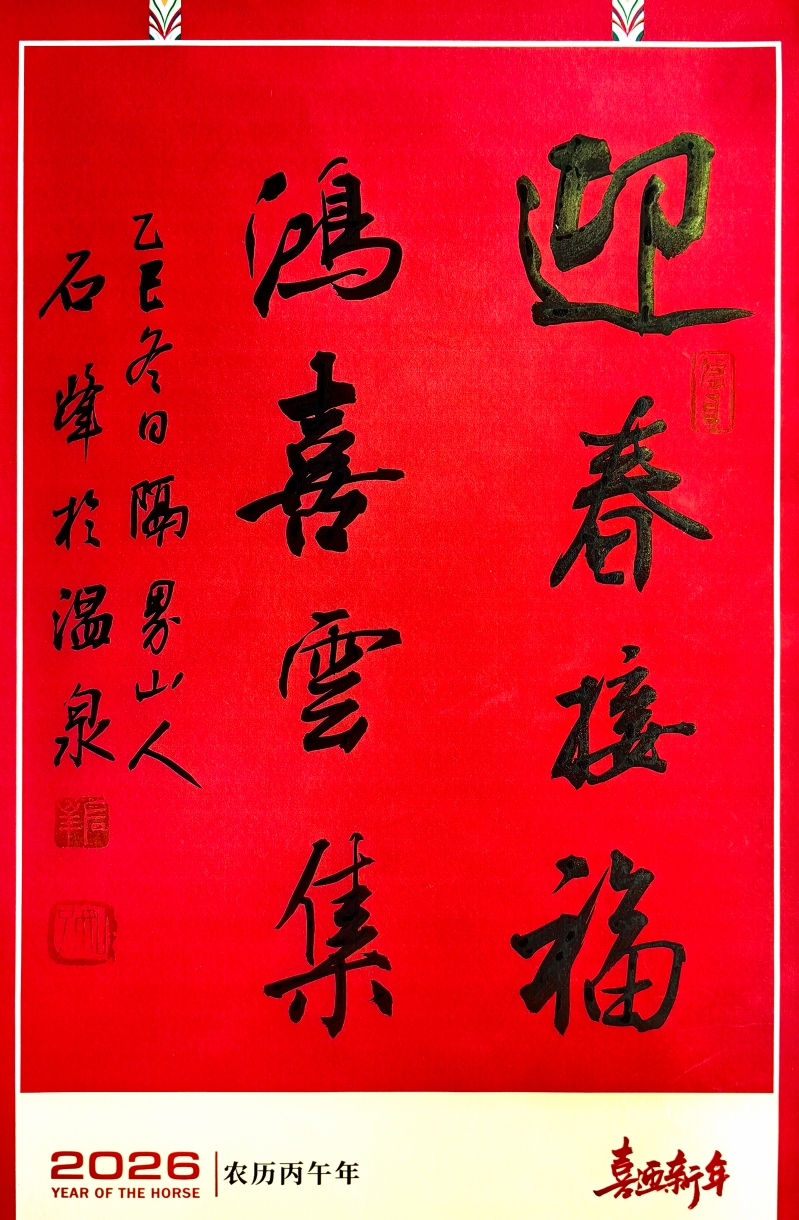 迎春接福
鸿喜雲集
乙巳冬日隔界山人
石峰於温泉
2026
YEAR OF THE HORSE
农历丙午年
喜迎新年